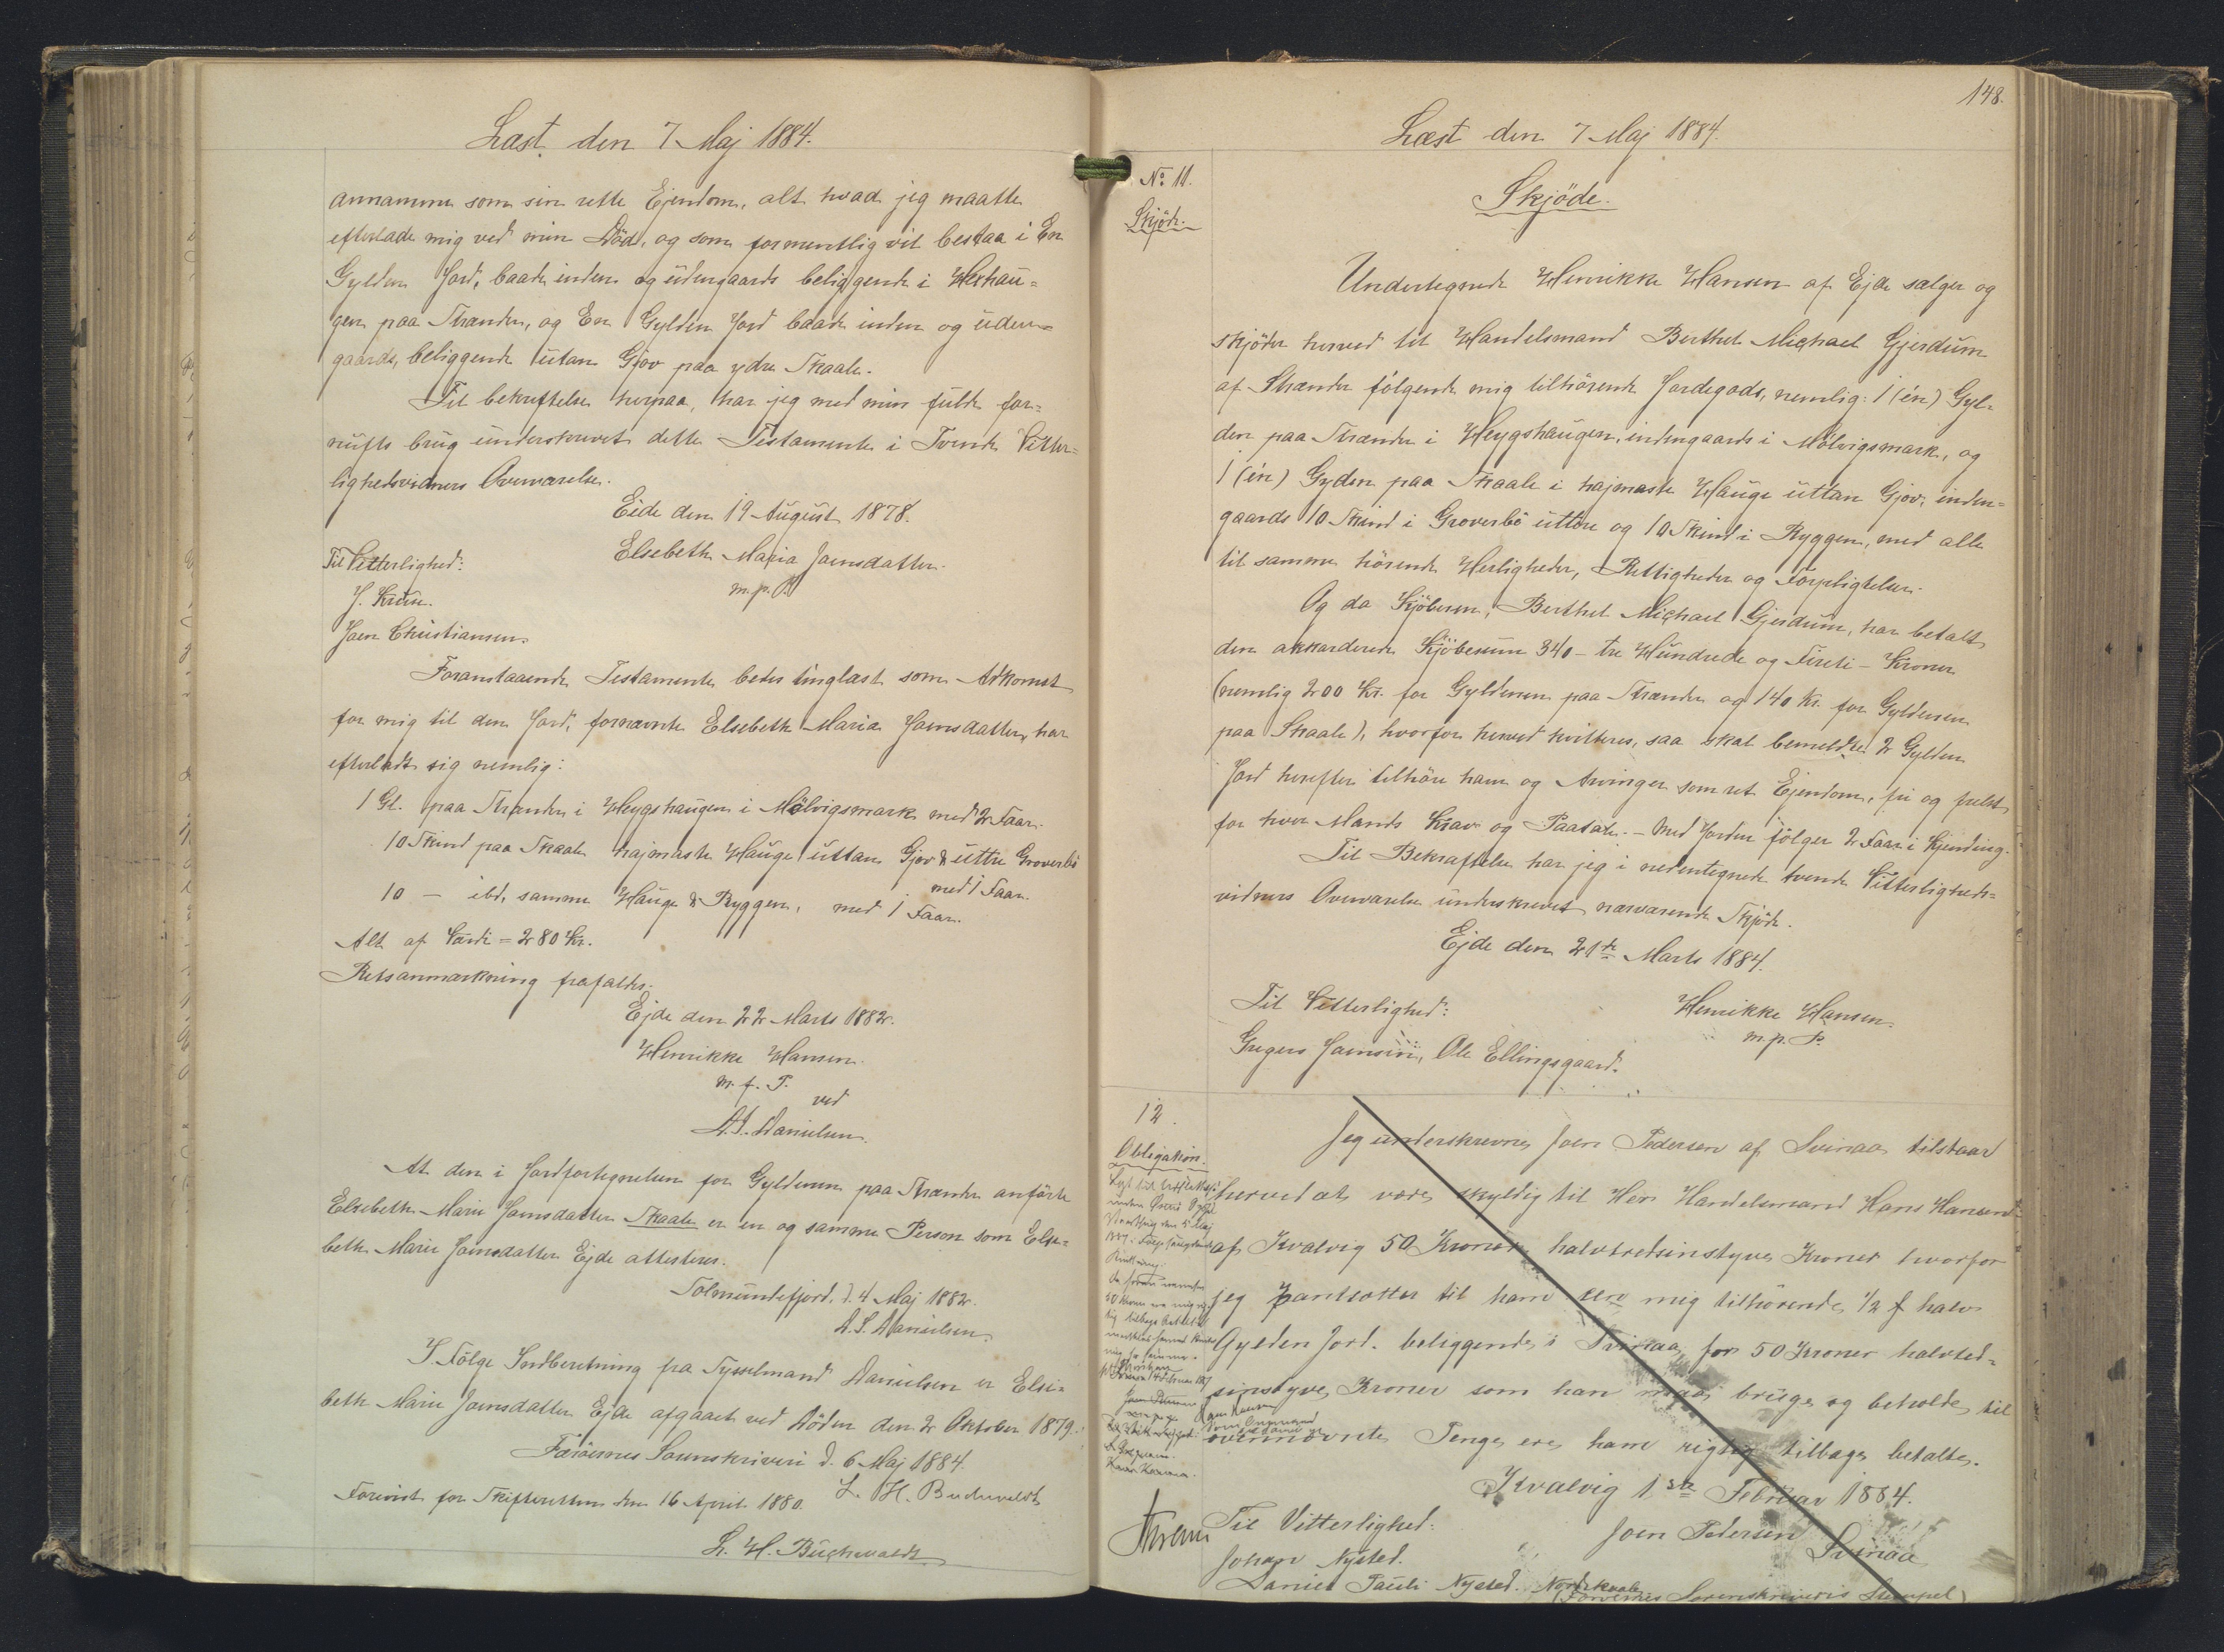 Læst den 7 Maj 1884.
annamme som sin rette Ejendom, alt hvad jeg maatte
efterlade mig ved min Död, og som formentlig vil bestaa i En
Gylden Jord, baade inden og udengaards beliggende i Heshau=
gen paa Strænder, og En Gylden Jord baade inden og uden=
gaards, beliggende utan Gjov paa ydre Skaale.
Til bekræftelse herpaa, har jeg med min fulde for=
nufts brug underskrevet dette Testamente i Tvende Vitter=
lighedsvidners Overværelse.
Eide den 19 August 1878.
Elsebeth Maria Joensdatter
m.p.P.
Til Vitterlighed:
J. Kruse.
Joen Christiansen.
Foranstaaende Testamente bedes tinglæst som Adkomst
for mig til den Jord, fornævnte Elsebeth Maria Joensdatter har
efterladt sig nemlig:
1 Gl. paa Strænder i Heygshaugen i Mölvigsmark med 2 Faar.
10 Skind paa Skaale hajmaste Hauge uttan Gjov & uttre Groverbö
med 1 Faar.
10 — ibd. samme Hauge & Ryggen, med 1 Faar.
Alt af Værdi = 280 Kr.
Retsanmærkning frafaldes.
Ejde den 22 Marts 1882.
Henrikke Hansen
m. f. P.
ved
D.S. Danielsen.
At den i Jordfortegnelsen for Gyldenen paa Strænder anförte
Elsebeth Marie Joensdatter Skaale er en og samme Person som Else=
beth Marie Joensdatter Ejde attesteres.
Solmundefjord, d. 4 Maj 1882.
D.S. Danielsen.
I Fölge Indberetning fra Sysselmand Danielsen er Else=
beth Marie Joensdatter Ejde afgaaet ved Döden den 2 Oktober 1879.
Færöernes Sorenskriveri d. 6 Maj 1884.
L. H. Buchwaldt
Forevist for Skifteretten den 16 April 1880.
L. H. Buchwaldt
148.
Læst den 7 Maj 1884.
No. 11.
Skjöde.
Skjöde.
Undertegnede Henrikke Hansen af Ejde sælger og
skjöder herved til Handelsmand Berthel Michael Gjerdum
af Strænder fölgende mig tilhörende Jordegods, nemlig: 1 (én) Gyl=
den paa Strænder i Heygshaugen, indengaards i Mölvigsmark, og
1 (én) Gyden paa Skaale i hajmaste Hauge uttan Gjov, inden=
gaards 10 Skind i Groverbö uttre og 10 Skind i Ryggen, med alle
til samme hörende Herligheder, Rettigheder og Forpligtelser.
Og da Kjöberen, Berthel Michael Gjerdum, har betalt
den akkorderede Kjöbesum 340 - tre Hundrede og Fireti - Kroner
(nemlig 200 Kr. for Gyldenen paa Strænder og 140 Kr. for Gyldenen
paa Skaale), hvorfor herved kvitteres, saa skal bemeldte 2 Gylden
Jord herefter tilhöre ham og Arvinger som ret Ejendom, fri og frelst
for hver Mands Krav og Paatale. - Med Jorden fölger 2 Faar i Kjending.
Til Bekræftelse har jeg i nedentegnede tvende Vitterligheds=
vidners Overværelse underskrevet nærværende Skjöde.
Ejde den 21de Marts 1884.
Henrikke Hansen.
m.p.P.
Til Vitterlighed:
Gregers Joensen, Ole Ellingsgaard.
12.
Obligation.
Jeg underskrevne Joen Pedersen af Svinaa tilstaar
herved at være skyldig til Herr Handelsmand Hans Hansen
af Kvalvig 50 Kroner halvtredsinstyve Kroner hvorfor
jeg pantsætter til ham den mig tilhörende 1/2 halv
Gylden Jord. beliggende i Svinaa, for 50 Kroner halvted=
sinstyve Kroner som han maa bruge og beholde til
overnævnte Penge ere ham rigtig tilbage betalte.
Kvalvig 1ste Februar 1884.
Joen Pedersen Svinaa
Til Vitterlighed:
Johan Nysted.
Daniel Pauli Nysted. Nordskaale
(Færöernes Sorenskriveris Stempel)